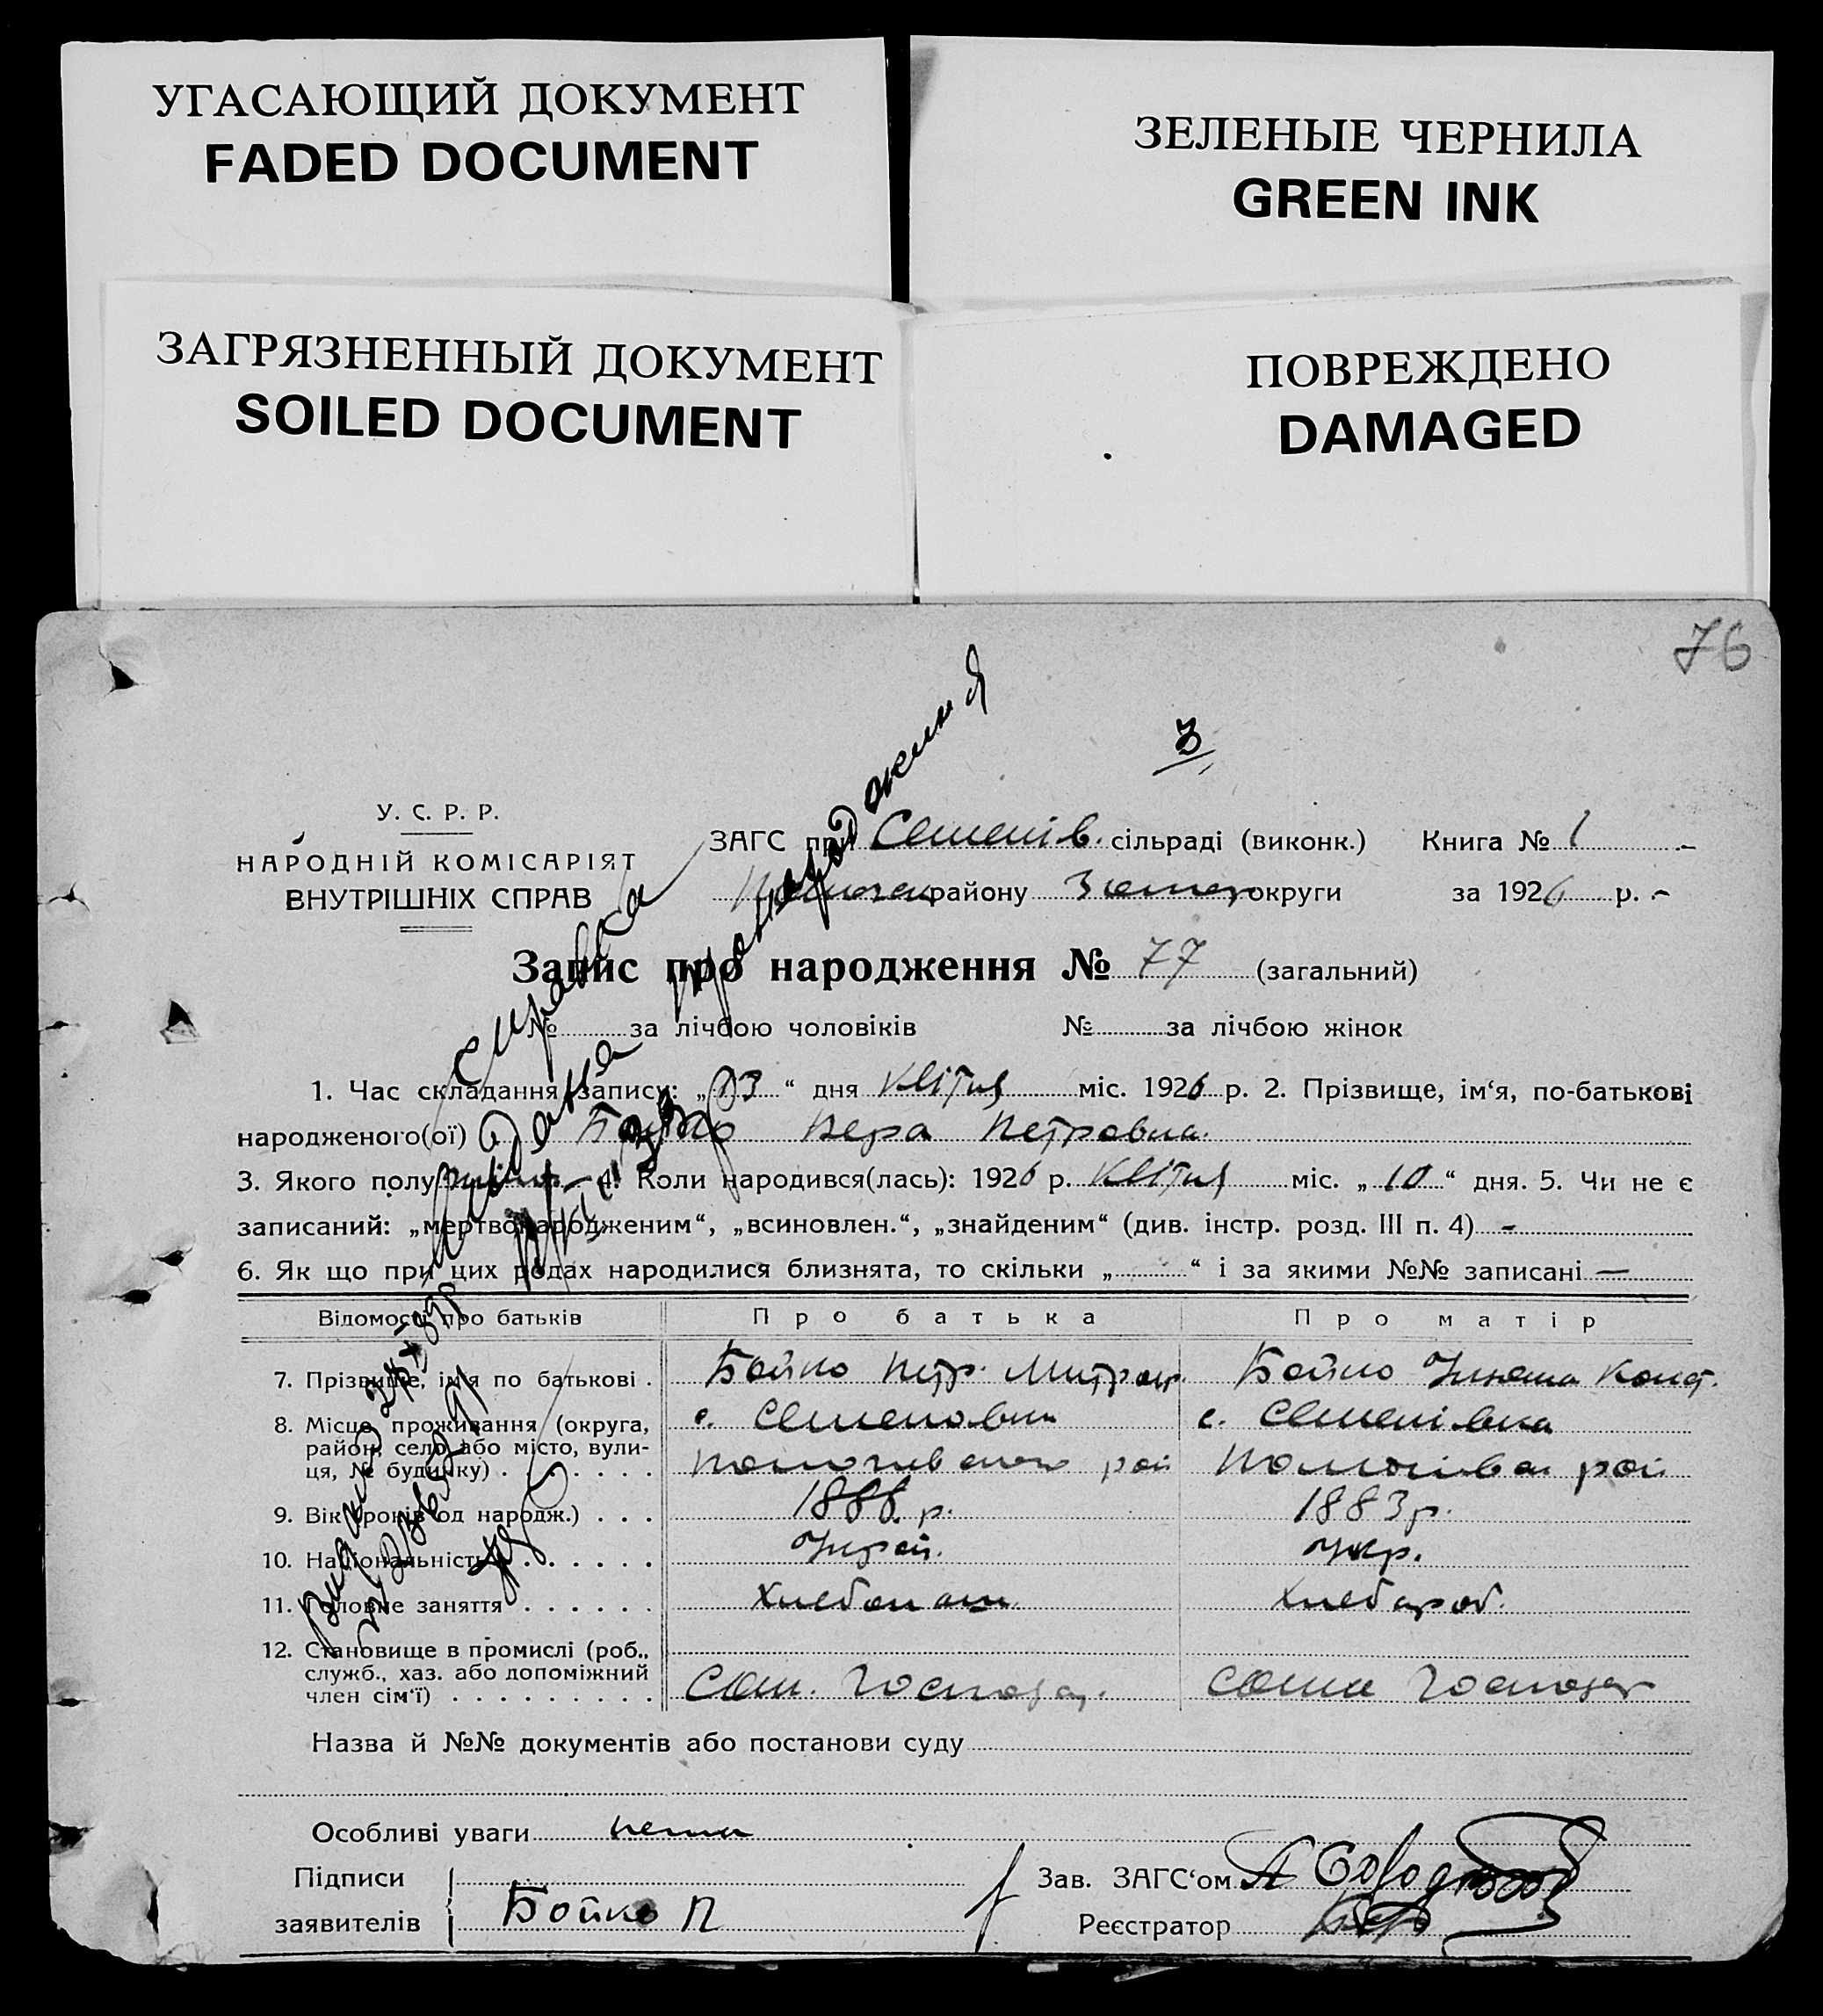 УГАСАЮЩИЙ ДОКУМЕНТ
FADED DOCUMENT
ЗЕЛЕНЫЕ ЧЕРНИЛА
GREEN INK
ЗАГРЯЗНЕННЫЙ ДОКУМЕНТ
SOILED DOCUMENT
ПОВРЕЖДЕНО
DAMAGED
76
3
У. С. Р. Р.
НАРОДНІЙ КОМІСАРІЯТ
ВНУТРІШНІХ СПРАВ
ЗАГС при Семенів. сільраді (виконк.) Книга № 1
району округи за 1926 р.
Запис про народження № 77 (загальний)
№ за лічбою чоловіків № за лічбою жінок
1. Час складання запису: „13“ дня Квітня міс. 1926 р. 2. Прізвище, ім‘я, по-батькові
народженого(ої) Бойко Вера Петровна.
3. Якого полу 4. Коли народився(лась): 1926 р. Квітня міс. „10“ дня. 5. Чи не є
записаний: „мертвонародженим“, „всиновлен.“, „знайденим“ (див. інстр. розд. III п. 4) -
6. Як що при цих родах народилися близнята, то скільки „ “ і за якими №№ записані —
Відомості про батьків Про батька Про матір
7. Прізвище, ім‘я по батькові . Бойко Петр. Митроф. Бойко Конст.
8. Місце проживання (округа, с. Семеновка с. Семенівка
район, село або місто, вули-
ця, № будинку) . . . . . . . рай рай
9. Вік (років од народж.) . . . 1888 р. 1883 р.
10. Національність . . . . . . Украй. Укр.
11. Головне заняття . . . . . . Хлебопаш. Хлебороб.
12. Становище в промислі (роб.,
служб., хаз. або допоміжний
член сім‘ї) . . . . . . . . . Сам. господар. Сама господар
Назва й №№ документів або постанови суду
Особливі уваги нема
Підписи
заявителів Бойко П
Зав. ЗАГС‘ом
Реєстратор
Справка
видана
про народження